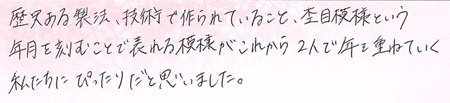 歴史ある製法、技術で作られていること、杢目模様という
年月を刻むことで表れる模様がこれから2人で年を重ねていく
私たちにぴったりだと思いました。